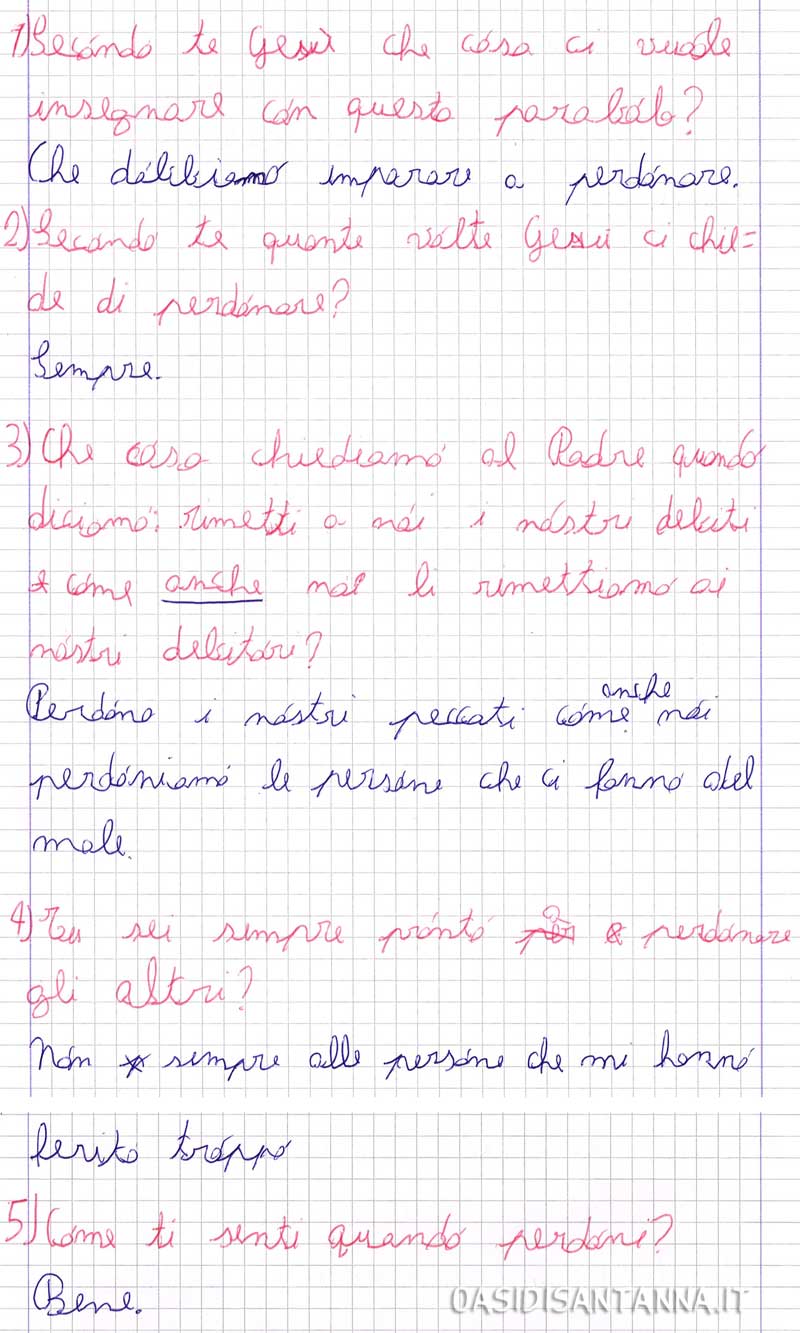 1) Secondo te Gesù che cosa ci vuole
insegnare con questa parabola?
Che dobbiamo imparare a perdonare.
2) Secondo te quante volte Gesù ci chie=
de di perdonare?
Sempre.
3) Che cosa chiediamo al Padre quando
diciamo: rimetti a noi i nostri debiti
come anche noi li rimettiamo ai
nostri debitori?
Perdona i nostri peccati come anche noi
perdoniamo le persone che ci fanno del
male.
4) Tu sei sempre pronto a perdonare
gli altri?
Non sempre alle persone che mi hanno
ferito troppo
5) Come ti senti quando perdoni?
Bene.
OASIDISANTANNA.IT